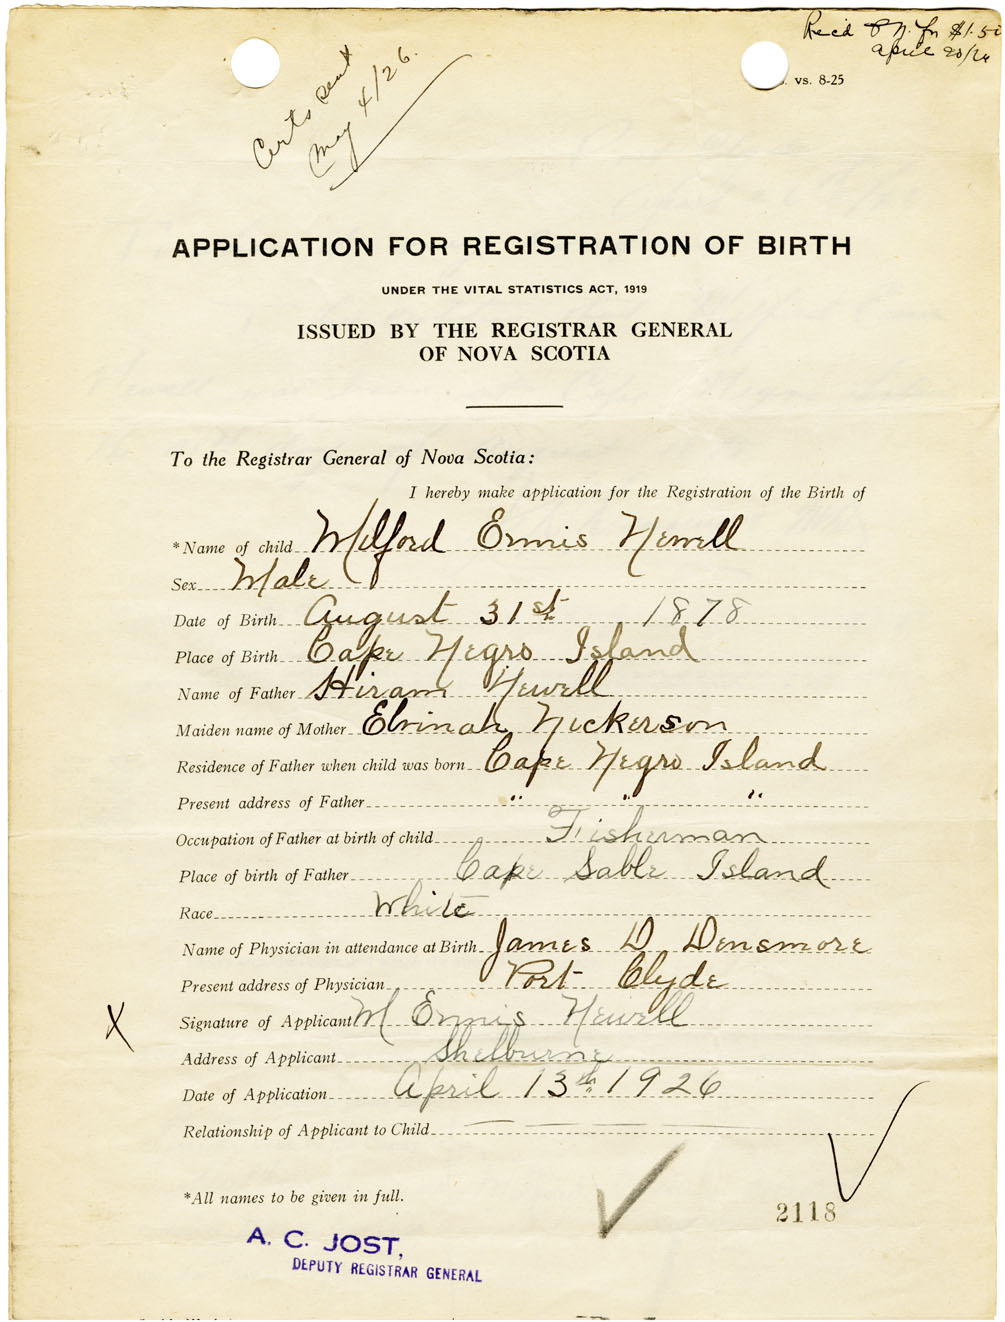 Rec'd P.N. for $1.50
April 20/26
vs. 8-25
Certs sent
May 4/26.
APPLICATION FOR REGISTRATION OF BIRTH
UNDER THE VITAL STATISTICS ACT, 1919
ISSUED BY THE REGISTRAR GENERAL
OF NOVA SCOTIA
To the Registrar General of Nova Scotia:
I hereby make application for the Registration of the Birth of
*Name of child Milford Ermis Newell
Sex Male
Date of Birth August 31st 1878
Place of Birth Cape Negro Island
Name of Father Hiram Newell
Maiden name of Mother Elvinah Nickerson
Residence of Father when child was born Cape Negro Island
Present address of Father " " "
Occupation of Father at birth of child Fisherman
Place of birth of Father Cape Sable Island
Race White
Name of Physician in attendance at Birth James D Densmore
Present address of Physician Port Clyde
X Signature of Applicant M Ermis Newell
Address of Applicant Shelburne
Date of Application April 13th 1926
Relationship of Applicant to Child
*All names to be given in full.
2118
A. C. JOST,
DEPUTY REGISTRAR GENERAL